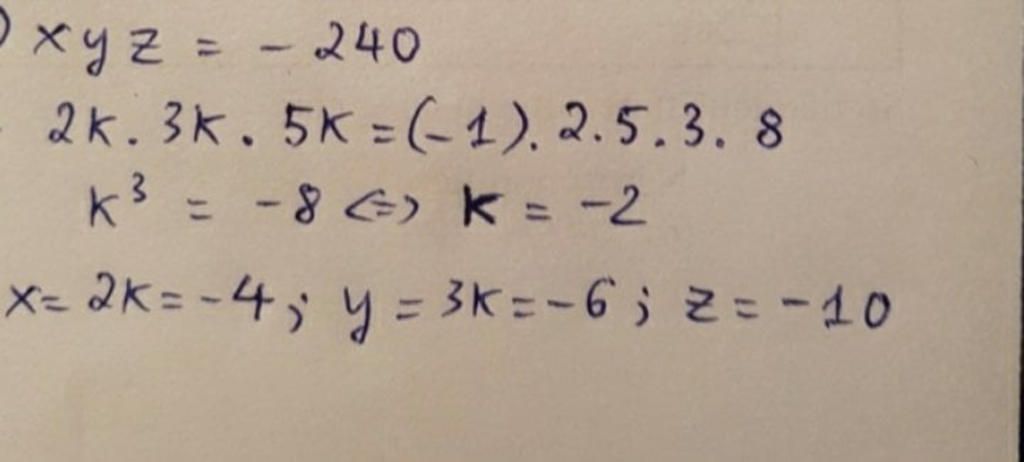 ) xyz = - 240
2k. 3k. 5k = (-1). 2.5.3. 8
k³ = -8 <=> k = -2
x = 2k = -4; y = 3k = -6; z = -10